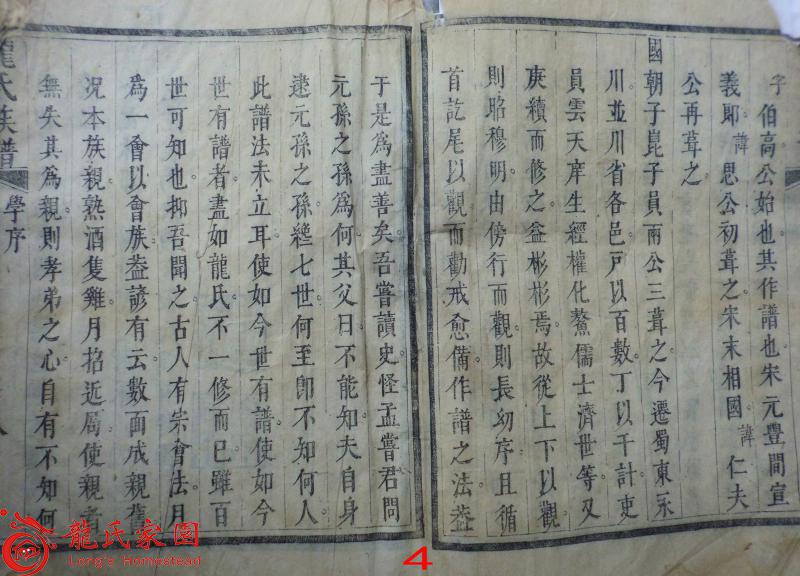 字伯高公始也其作譜也宋元豐間宣
義郎諱思公初葺之宋末相國諱仁夫
公再葺之
國朝子崑子員兩公三葺之今遷蜀東永
川並川省各邑戶以百數丁以千計吏
員雲天庠生經權化鰲儒士濟世等又
賡續而修之益彬彬焉故從上下以觀
則昭穆明由傍行而觀則長幼序且循
首訖尾以觀而勸戒愈備作譜之法葢
于是為盡善矣吾嘗讀史怪孟嘗君問
元孫之孫為何其父曰不能知夫自身
逮元孫之孫纔七世何至卽不知何人
此譜法未立耳使如今世有譜使如今
世有譜者盡如龍氏不一修而已雖百
世可知也抑吾聞之古人有宗會法月
為一會以會族葢諺有云數面成親舊
況本族親熟酒隻雞月招近局使親者
無失其為親則孝弟之心自有不知何
龍氏族譜
學序
龍氏家園
Long's Homestead
4